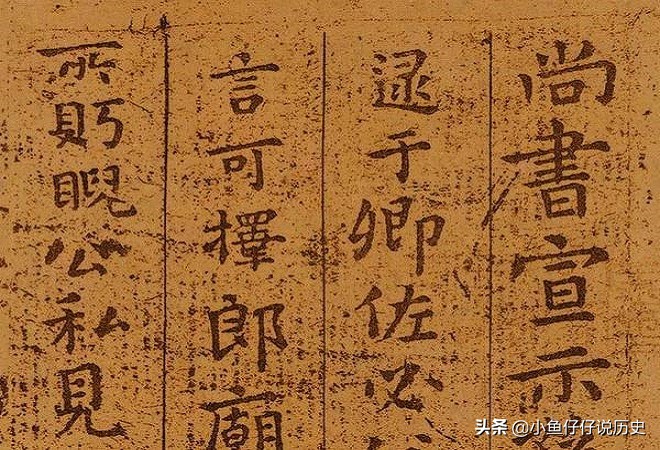 尚書宣示
逮于卿佐必
言可擇郎廟
所眄睨公私見
头条 @小鱼仔仔说历史